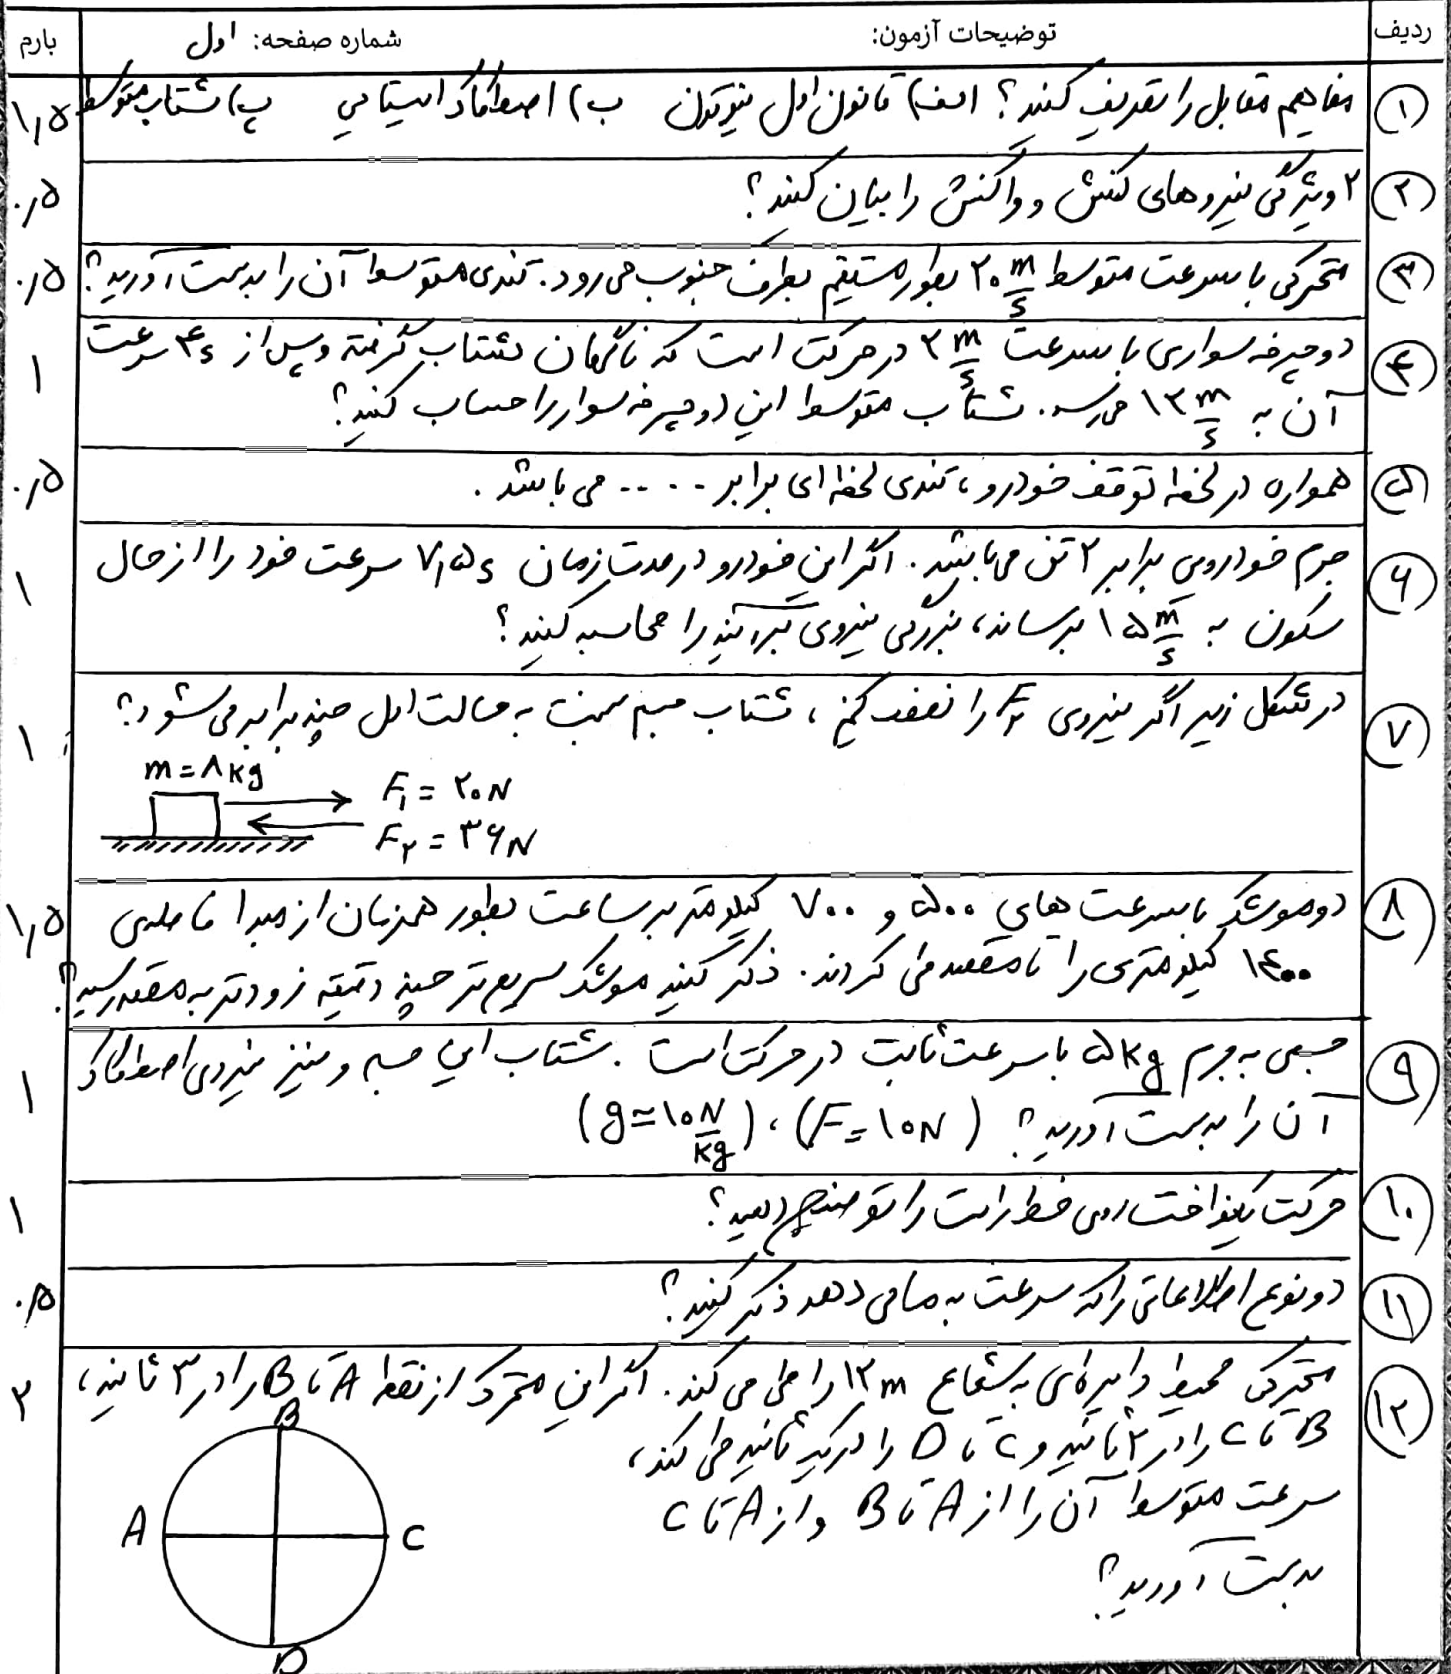 ردیف توضیحات آزمون: شماره صفحه: اول بارم
۱ مفاهیم مقابل را تعریف کنید؟ الف) قانون اول نیوتون ب) اصطکاک ایستایی پ) شتاب متوسط ۱,۵
۲ ۲ ویژگی نیروهای کنش و واکنش را بیان کنید؟ ۰,۵
۳ متحرکی با سرعت متوسط ۲۰ m/s بطور مستقیم بطرف جنوب می رود. تندی متوسط آن را بدست آورید؟ ۰,۵
۴ دوچرخه سواری با سرعت ۳ m/s در حرکت است که ناگهان شتاب گرفته و پس از ۴s سرعت ۱
آن به ۱۳ m/s می رسد. شتاب متوسط این دوچرخه سوار را حساب کنید؟
۵ همواره در لحظه توقف خودرو، تندی لحظه ای برابر .... می باشد. ۰,۵
۶ جرم خودرویی برابر ۲ تن می باشد. اگر این خودرو در مدت زمان ۷,۵s سرعت خود را از حال ۱
سکون به ۱۵ m/s برساند، بزرگی نیروی برآیند را محاسبه کنید؟
۷ در شکل زیر اگر نیروی F۲ را نصف کنیم، شتاب جسم نسبت به حالت اول چند برابر می شود؟ ۱
m=۸kg
F۱=۲۰N
F۲=۳۶N
۸ دو موشک با سرعت های ۵۰۰ و ۷۰۰ کیلومتر بر ساعت بطور همزمان از مبدا فاصله ی ۱,۵
۱۴۰۰ کیلومتری را تا مقصد طی کردند. ذکر کنید موشک سریع تر چند دقیقه زودتر به مقصد رسید؟
۹ جسمی به جرم ۵kg با سرعت ثابت در حرکت است. شتاب این جسم و نیز نیروی اصطکاک ۱
آن را بدست آورید؟ (F=۱۰N)، (g≃۱۰ N/kg)
۱۰ حرکت یکنواخت روی خط راست را توضیح دهید؟ ۱
۱۱ دو نوع اطلاعاتی را که سرعت به ما می دهد ذکر کنید؟ ۰,۵
۱۲ متحرکی محیط دایره ای به شعاع ۱۲m را طی می کند. اگر این متحرک از نقطه A تا B را در ۳ ثانیه، ۲
B تا C را در ۲ ثانیه و C تا D را در یک ثانیه طی کند،
سرعت متوسط آن را از A تا B و از A تا C
بدست آورید؟
B
A C
D